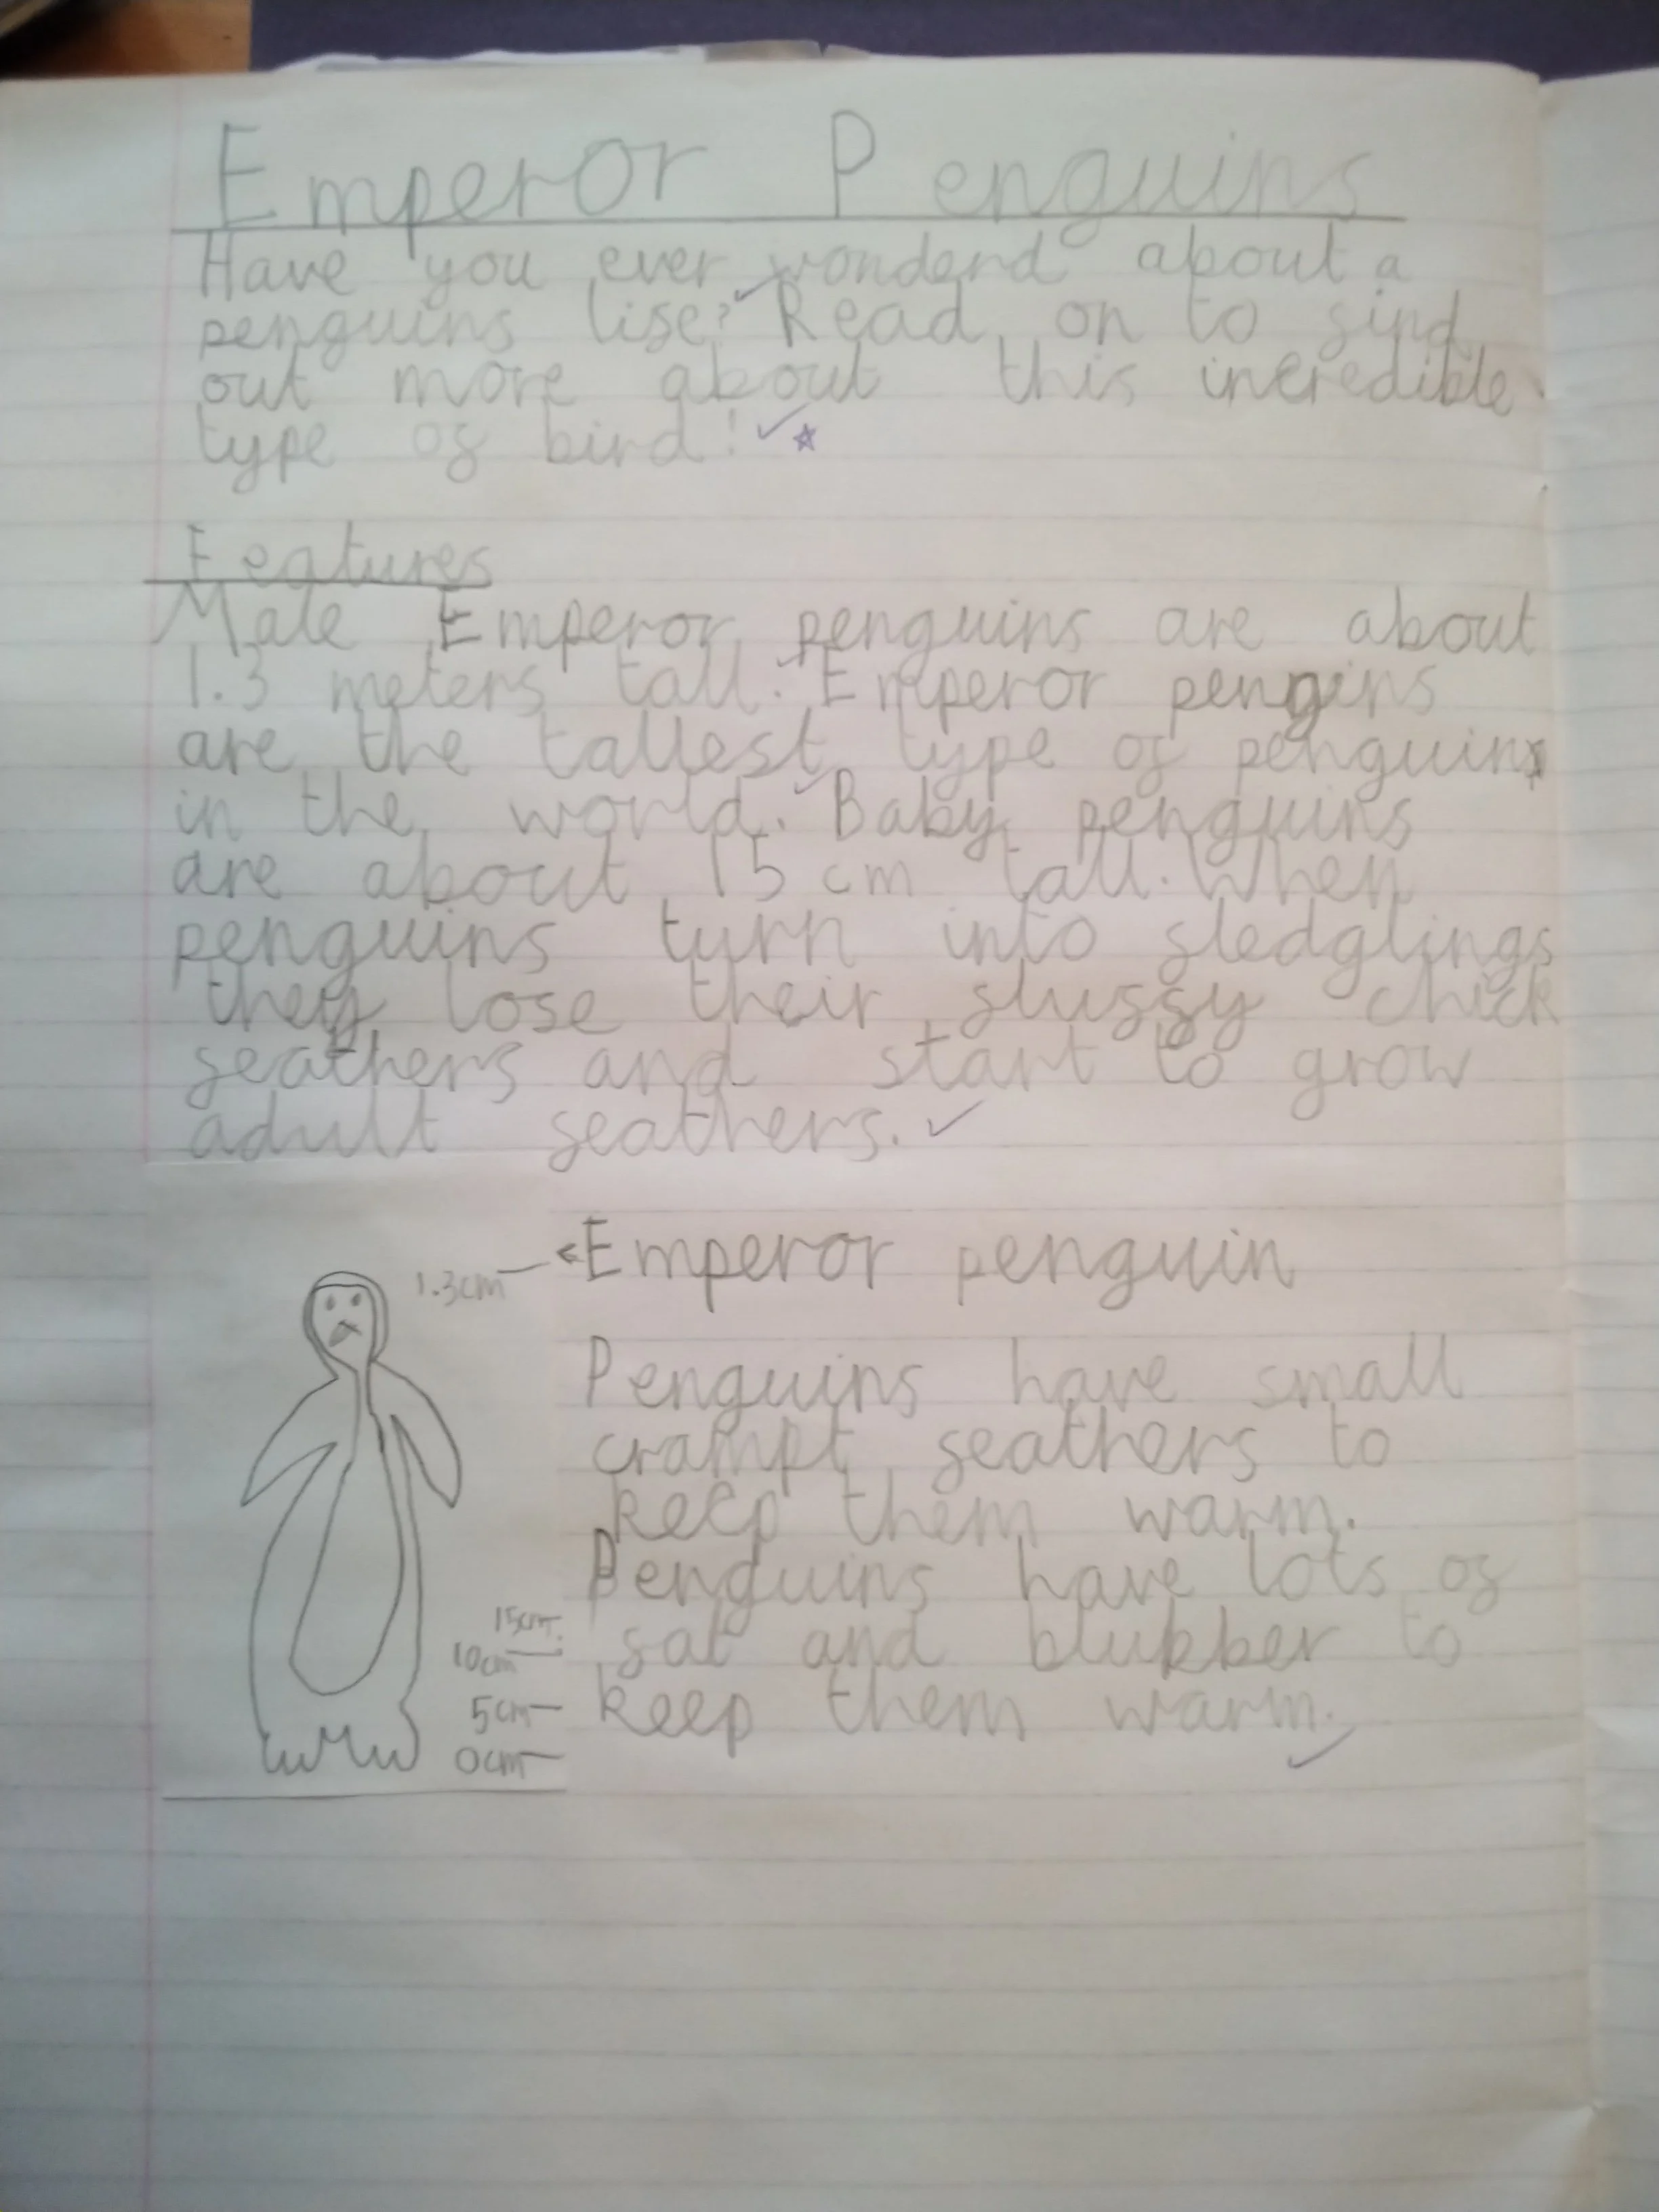 Emperor Penguins
Have you ever wonderd about a
penguins life? Read on to find
out more about this incredible
type of bird!
Features
Male Emperor penguins are about
1.3 meters tall. Emperor pengins
are the tallest type of penguin
in the world. Baby penguins
are about 15 cm tall. When
penguins turn into fledglings
they lose their fluffy chick
feathers and start to grow
adult feathers.
Emperor penguin
1.3cm
Penguins have small
crampt feathers to
keep them warm.
Penguins have lots of
15cm
fat and blubber to
10cm
keep them warm.
5cm
0cm